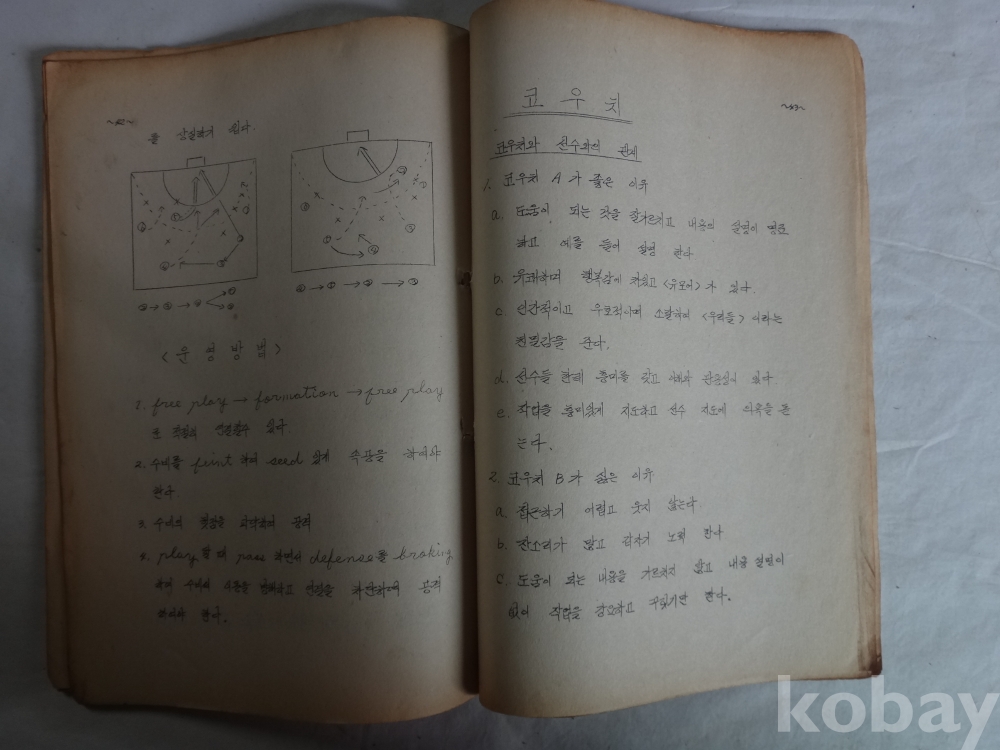 를 상실하게 된다.
<운영방법>
1. free play → formation → free play
로 연결
2. 수비를 feint 하며 seed 있게 속공을 하여야
한다
3. 수비의 헛점을 파악하여 공격
4. play 할 때 pass 하면서 defense를 braking
하며 수비의 차단하며 공격
하여야 한다.
~43~
코우치
코우치와 선수와의 관계
1. 코우치 A가 좋은 이유
a. 도움이 되는 것을 잘가르치고 내용의 설명이 명확
하고 예를 들어 설명 한다
b. 유쾌하며 행복감에 차있고 <유모어>가 있다.
c. 인간적이고 우호적이며 소탈하여 <우리들> 이라는
친밀감을 준다.
d. 선수들 한테 흥미를 갖고 이해와 관용성이 있다
e. 작업을 흥미있게 지도하고 선수 지도에 의욕을 돋
는다.
2. 코우치 B가 싫은 이유
a. 접근하기 어렵고 웃지 않는다
b. 잔소리가 많고 갑자기 노해 한다
c. 도움이 되는 내용을 가르치지 않고 내용 설명이
없이 작업을 강요하고 꾸짖기만 한다.
kobay